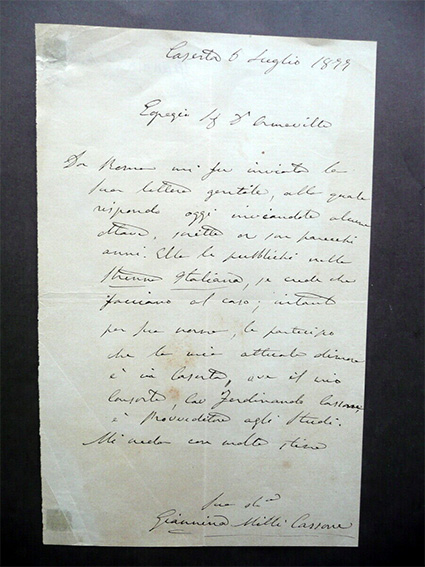 Caserta 6 Luglio 1877
Egregio Sig D'Ormeville
Da Roma mi fu inviata la
sua lettera gentile, alla quale
rispondo oggi inviandole alcune
ottave, scritte or son parecchi
anni. Ella le pubblichi nella
Strenna Italiana, se crede che
facciano al caso; intanto
per sua norma, le partecipo
che la mia attuale dimora
è in Caserta, ove il mio
consorte, Cav Ferdinando Cassone
è Provveditore agli Studi.
Mi creda con molta stima
Sua
Giannina Milli Cassone